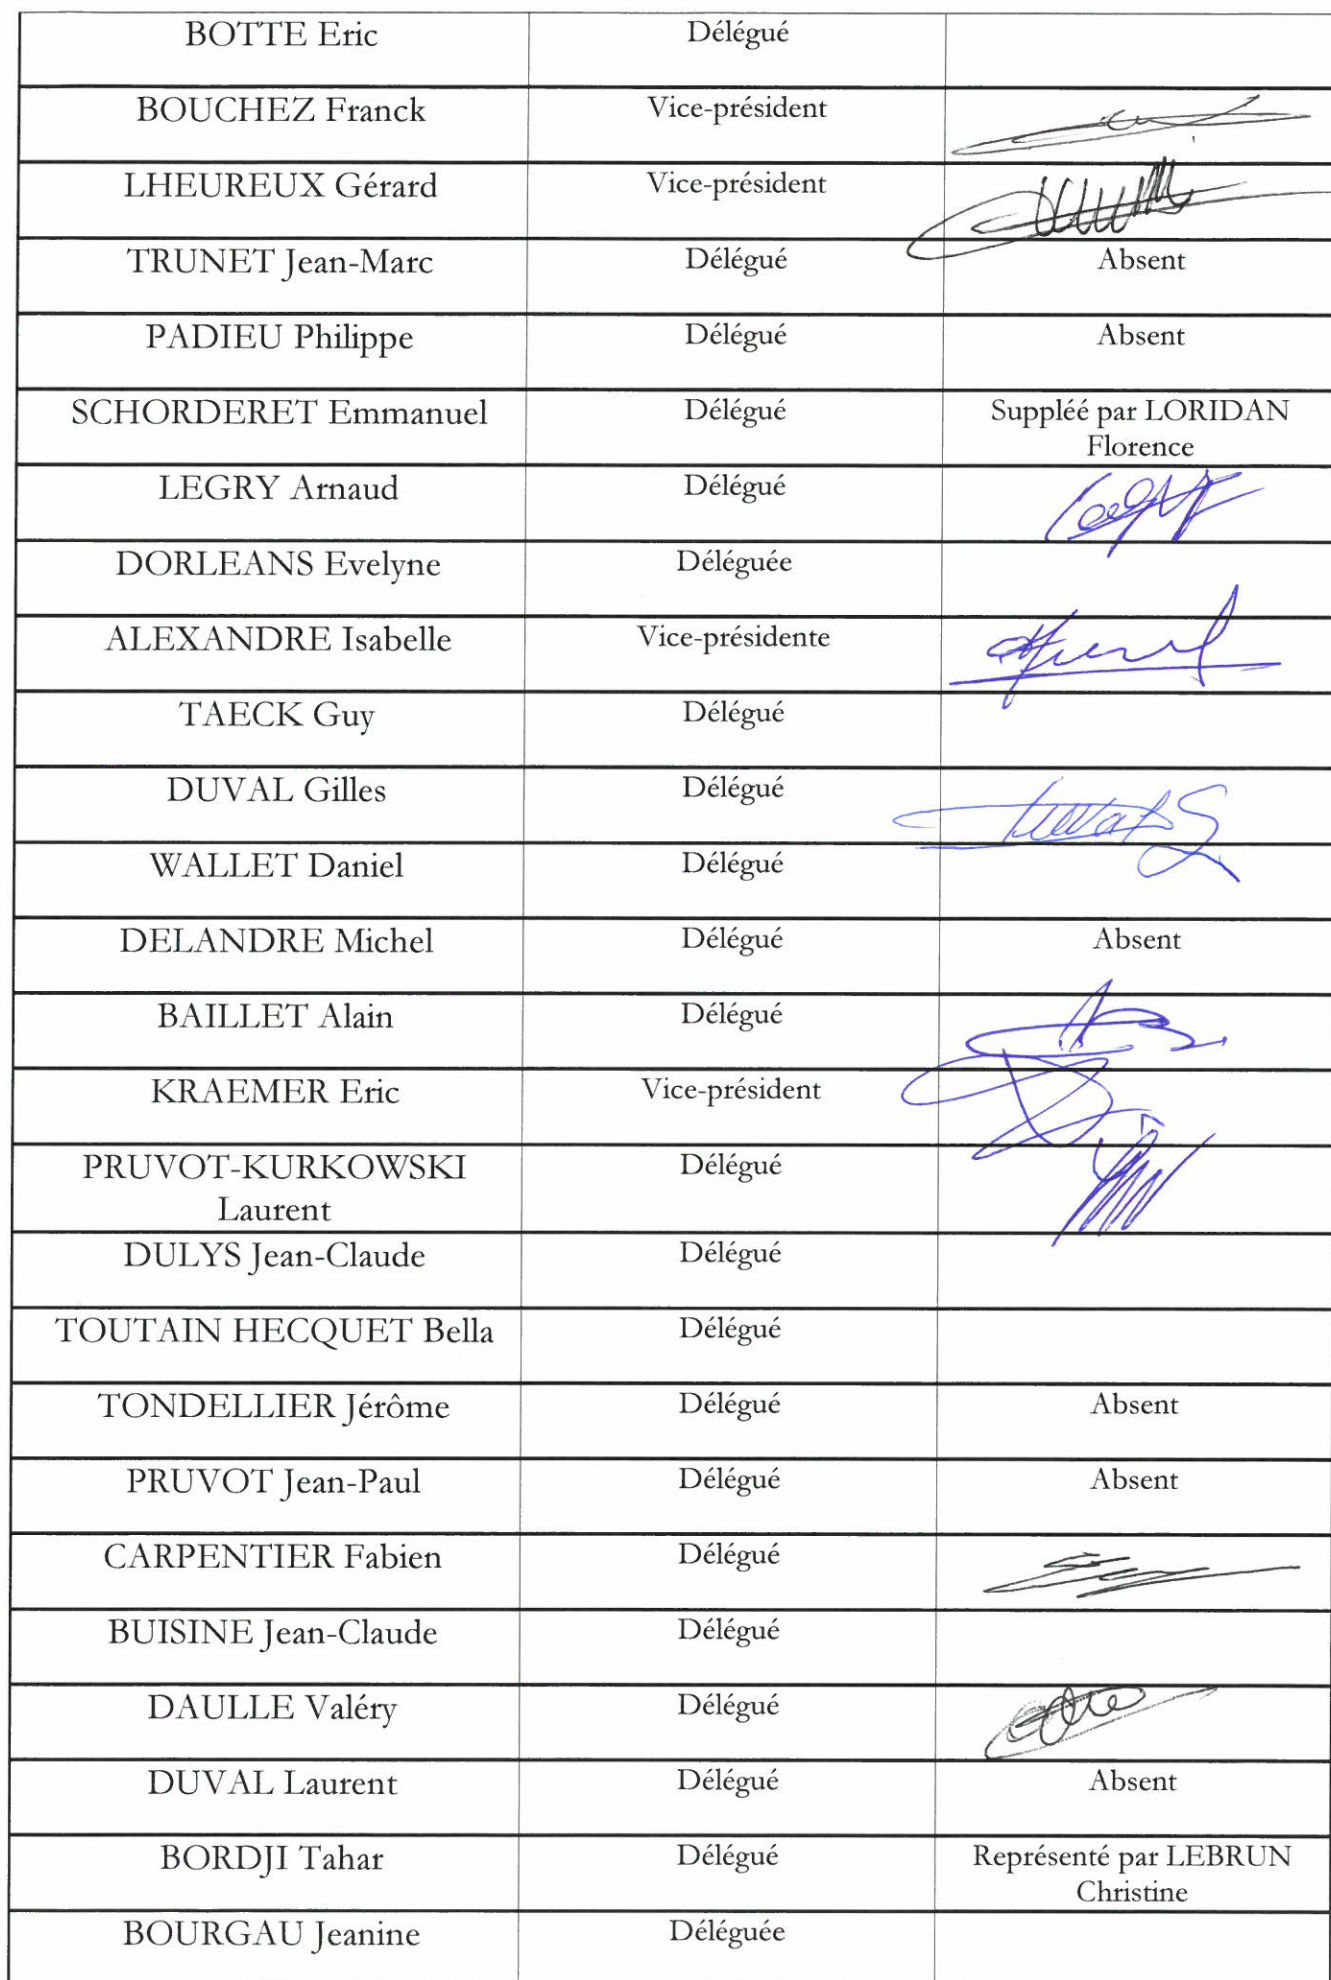 BOTTE Eric Délégué
BOUCHEZ Franck Vice-président
LHEUREUX Gérard Vice-président
TRUNET Jean-Marc Délégué Absent
PADIEU Philippe Délégué Absent
SCHORDERET Emmanuel Délégué Suppléé par LORIDAN
Florence
LEGRY Arnaud Délégué
DORLEANS Evelyne Déléguée
ALEXANDRE Isabelle Vice-présidente
TAECK Guy Délégué
DUVAL Gilles Délégué
WALLET Daniel Délégué
DELANDRE Michel Délégué Absent
BAILLET Alain Délégué
KRAEMER Eric Vice-président
PRUVOT-KURKOWSKI Délégué
Laurent
DULYS Jean-Claude Délégué
TOUTAIN HECQUET Bella Délégué
TONDELLIER Jérôme Délégué Absent
PRUVOT Jean-Paul Délégué Absent
CARPENTIER Fabien Délégué
BUISINE Jean-Claude Délégué
DAULLE Valéry Délégué
DUVAL Laurent Délégué Absent
BORDJI Tahar Délégué Représenté par LEBRUN
Christine
BOURGAU Jeanine Déléguée